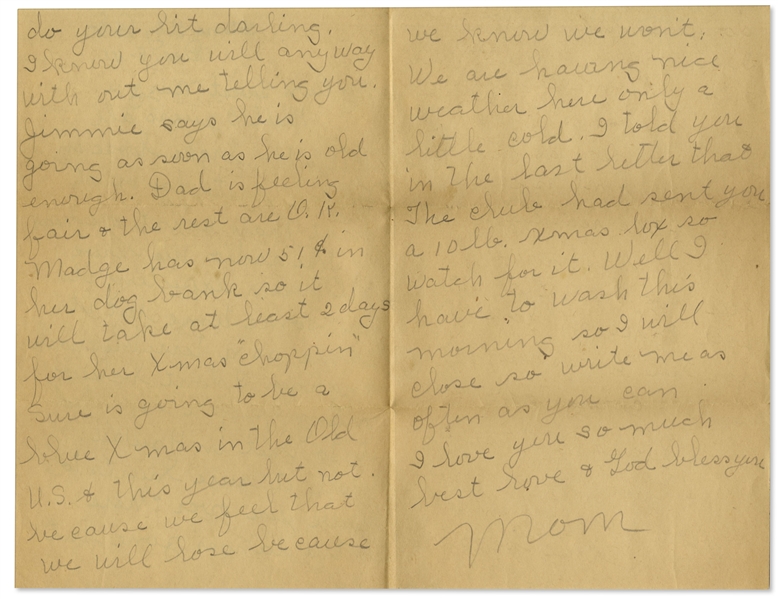 do your bit darling.
I know you will anyway
with out me telling you.
Jimmie says he is
going as soon as he is old
enough. Dad is feeling
fair & the rest are O.K.
Madge has now 51¢ in
her dog bank so it
will take at least 2 days
for her Xmas "choppin"
Sure is going to be a
blue Xmas in the Old
U.S. & this year but not.
because we feel that
we will lose because
we know we wont.
We are having nice
weather here only a
little cold. I told you
in the last letter that
The club had sent you
a 10 lb. Xmas box so
watch for it. Well I
have to wash this
morning so I will
close so write me as
often as you can.
I love you so much
best love & God bless you
Mom